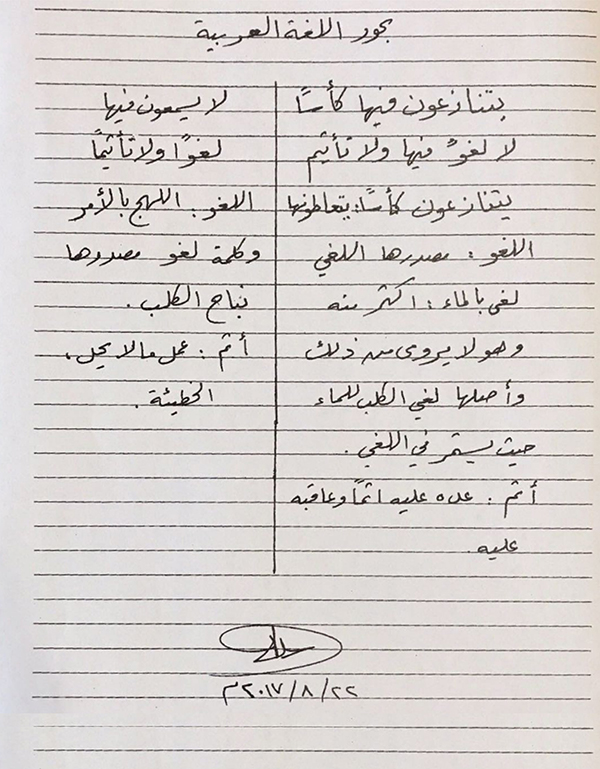 بحور اللغة العربية
يتنازعون فيها كأسًا
لا لغوٌ فيها ولا تأثيم
يتنازعون كأسًا: يتعاطونها
اللغو: مصدرها اللغي
لغى بالماء: اكثر منه
وهو لا يروى من ذلك
وأصلها لغي الكلب للماء
حيث يستمر في اللغي.
أثم: عده عليه اثمًا وعاقبه
عليه
لا يسمعون فيها
لغوًا ولا تأثيمًا
اللغو: اللهج بالأمر
وكلمة لغو مصدرها
نباح الكلب.
أثم: عمل مالا يحل،
الخطيئة.
٢٠١٧/٨/٢٢م